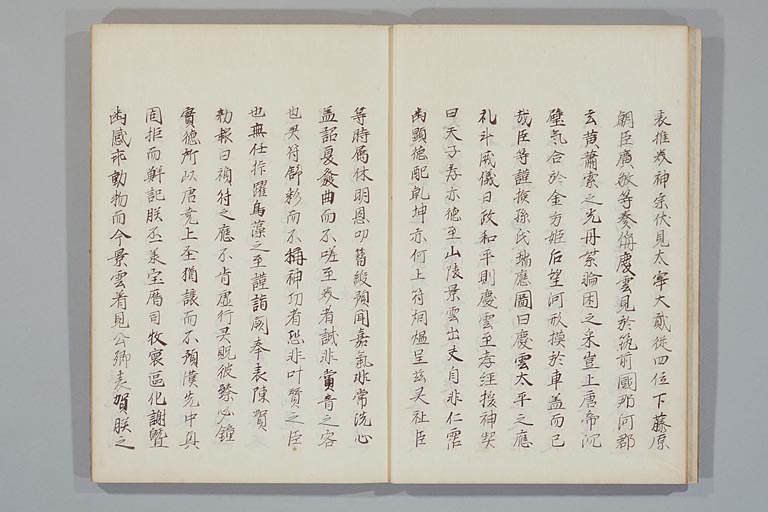 表推媺神宗伏見太宰大貳從四位下藤原
朝臣廣敏等奏偁慶雲見於筑前國那河郡
玄黄蕭索之光丹紫輪囷之采豈上唐帝沉
璧氣合於金方姫后望河形摸於車盖而已
哉臣等謹撿孫氏瑞應圖曰慶雲太平之應
礼斗威儀曰政和平則慶雲至孝經援神契
曰天子孝亦德至山陵景雲出丈自非仁霑
幽顯德配乾坤亦何上符烟熅呈玆灵社臣
等時属休明恩叨舊緩預聞嘉氣非常洗心
盖詔夏發曲而不嗟至者誠非賞音之客
也灵符舒彩而不攝神功者恐非叶賛之臣
也無任抃躍鳧藻之至謹詣闕奉表陳賀
勅報曰禎符之應不肯虚行灵貺彼祭必鐘
實德所以唐堯上圣猶讓而不預漢光中興
固拒而辭記朕丕羕宝暦司牧寰區化謝曁
幽感乖動物而今景雲着見公卿表賀朕之